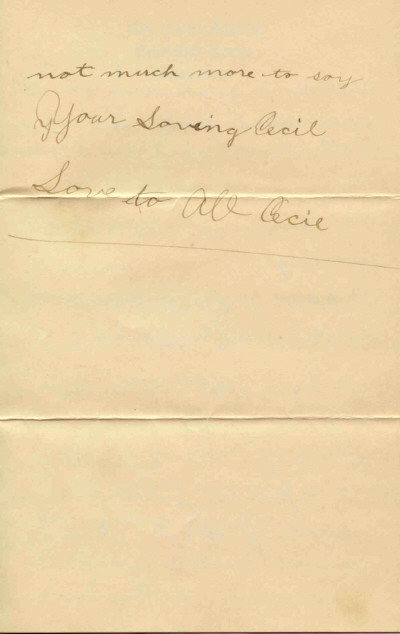 not much more to say
Your Loving Cecil
Love to All Cecil